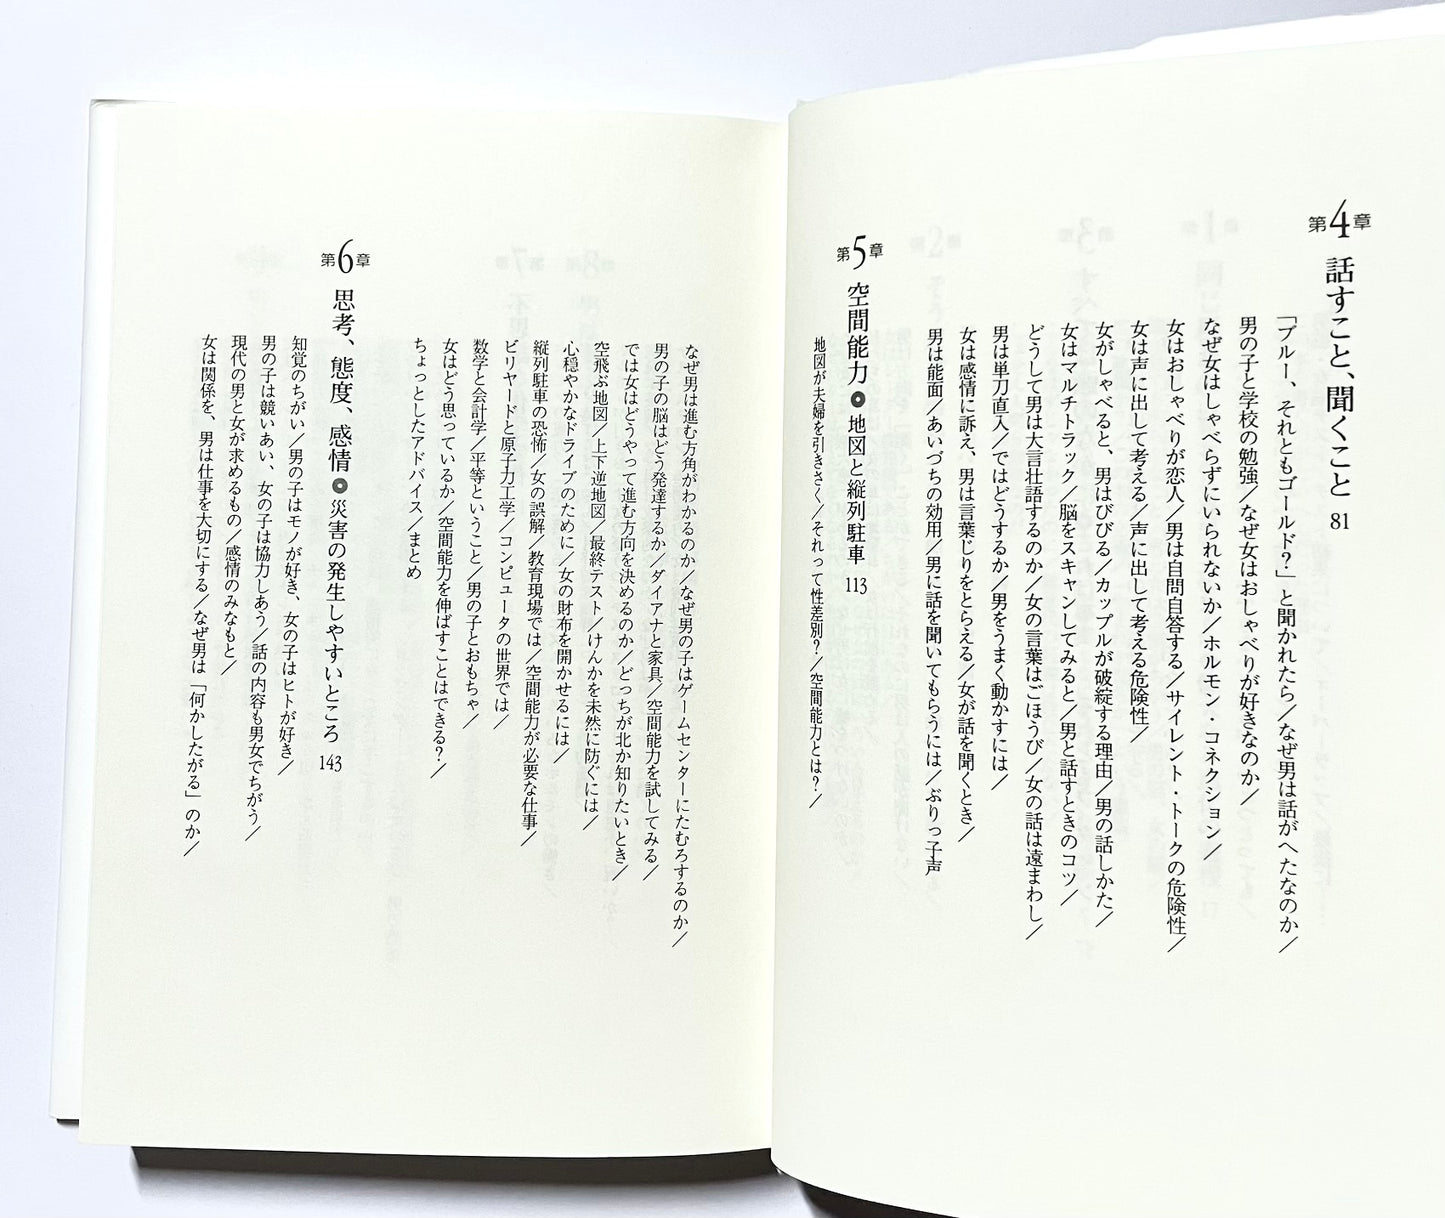 第4章 話すこと、聞くこと 81
「ブルー、それともゴールド?」と聞かれたら/なぜ男は話がへたなのか/
男の子と学校の勉強/なぜ女はおしゃべりが好きなのか/
なぜ女はしゃべらずにいられないか/ホルモン・コネクション/
女はおしゃべりが恋人/男は自問自答する/サイレント・トークの危険性/
女は声に出して考える/声に出して考える危険性/
女がしゃべると、男はびびる/カップルが破綻する理由/男の話しかた/
女はマルチトラック/脳をスキャンしてみると/男と話すときのコツ/
どうして男は大言壮語するのか/女の言葉はごほうび/女の話は遠まわし/
男は単刀直入/ではどうするか/男をうまく動かすには/
女は感情に訴え、男は言葉じりをとらえる/女が話を聞くとき/
男は能面/あいづちの効用/男に話を聞いてもらうには/ぶりっ子声
第5章 空間能力 地図と縦列駐車 113
地図が夫婦を引きさく/それって性差別?/空間能力とは?/
なぜ男は進む方角がわかるのか/なぜ男の子はゲームセンターにたむろするのか/
男の子の脳はどう発達するか/ダイアナと家具/空間能力を試してみる/
では女はどうやって進む方向を決めるのか/どっちが北か知りたいとき/
空飛ぶ地図/上下逆地図/最終テスト/けんかを未然に防ぐには/
心穏やかなドライブのために/女の財布を開かせるには/
縦列駐車の恐怖/女の誤解/教育現場では/空間能力が必要な仕事/
ビリヤードと原子力工学/コンピュータの世界では/
数学と会計学/平等ということ/男の子とおもちゃ/
女はどう思っているか/空間能力を伸ばすことはできる?/
ちょっとしたアドバイス/まとめ
第6章 思考、態度、感情 災害の発生しやすいところ 143
知覚のちがい/男の子はモノが好き、女の子はヒトが好き/
男の子は競いあい、女の子は協力しあう/話の内容も男女でちがう/
現代の男と女が求めるもの/感情のみなもと/
女は関係を、男は仕事を大切にする/なぜ男は「何かしたがる」のか/